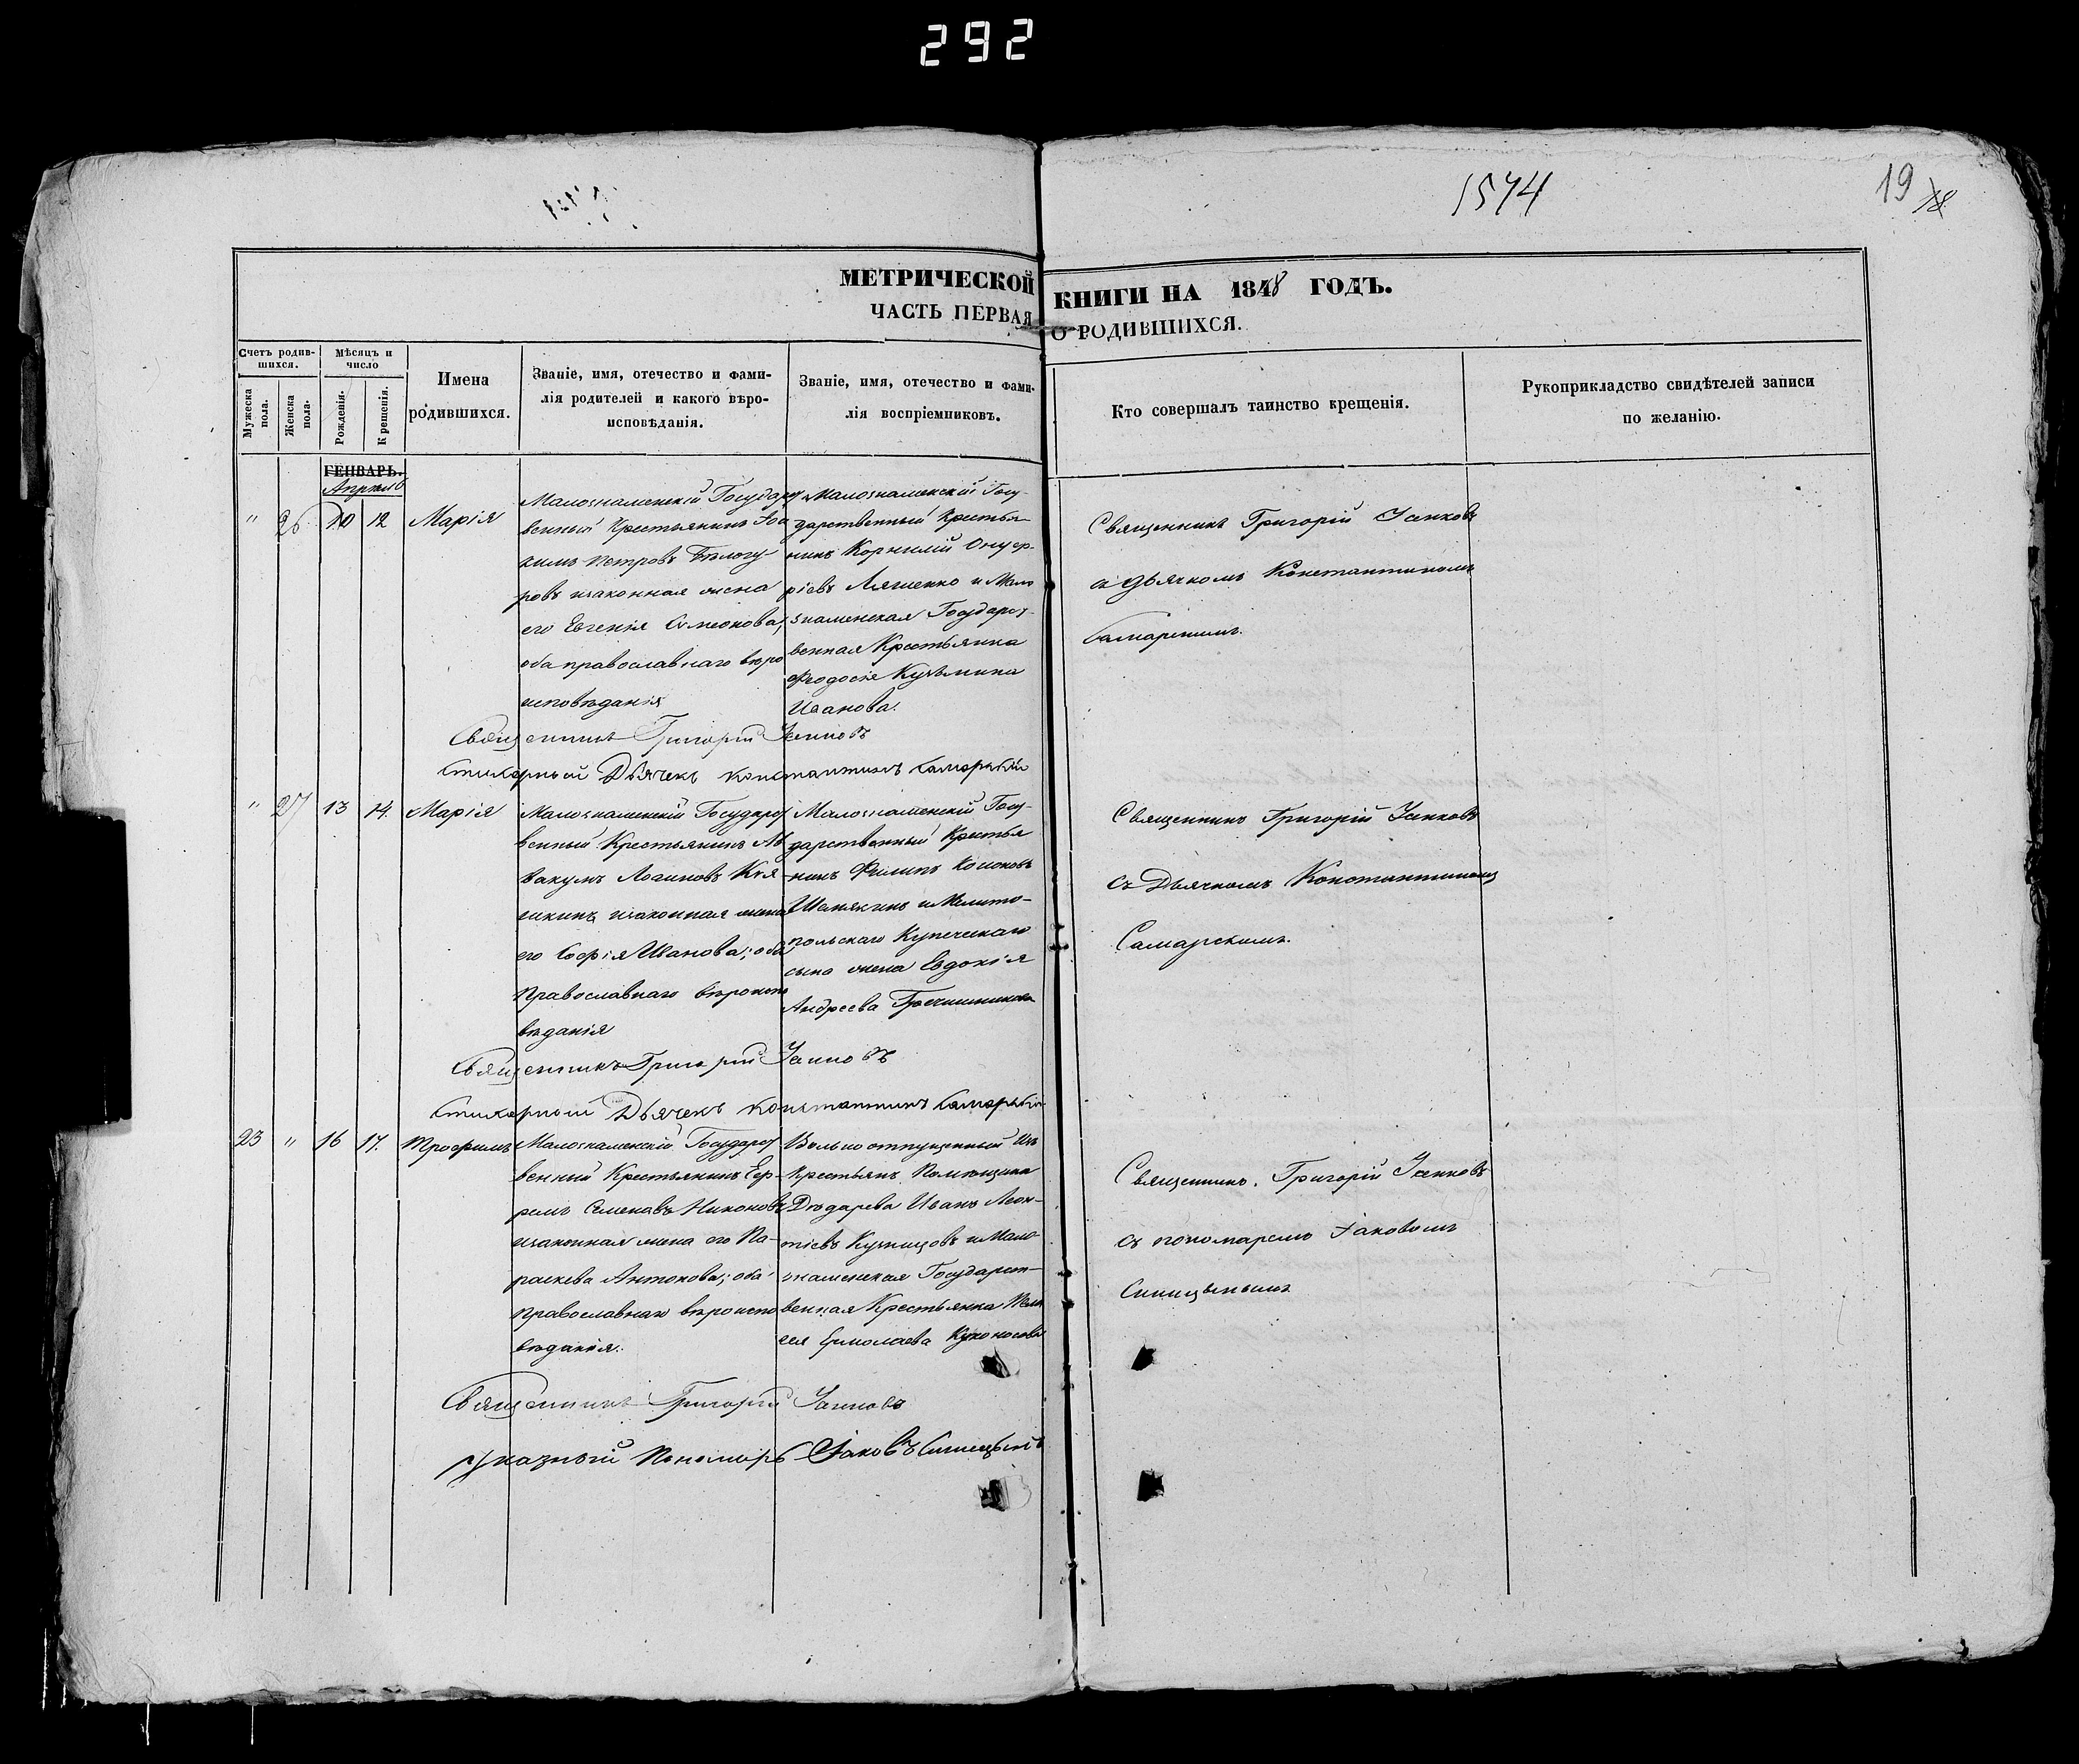 292
1574
19 18
МЕТРИЧЕСКОЙ КНИГИ НА 1848 ГОДЪ.
ЧАСТЬ ПЕРВАЯ О РОДИВШИХСЯ.
Счетъ родив-
шихся.
Мужеска пола.
Женска пола.
Мѣсяцъ и
число
Рожденія.
Крещенія.
Имена
родившихся.
Званіе, имя, отечество и фами-
лія родителей и какого вѣро-
исповѣданія.
Званіе, имя, отечество и фами-
лія воспріемниковъ.
Кто совершалъ таинство крещенія.
Рукоприкладство свидѣтелей записи
по желанію.
ГЕНВАРЬ.
Апрель
" 26 10 12 Марія
Малознаменскій Государст
венный Крестьянинъ Іоа
кимъ Петровъ Бѣлогу
ровъ изаконная жена
его Евгенія Симеонова,
оба православнаго вѣро
исповѣданія
Малознаменскій Госу-
дарственный Крестья-
нинъ Корнилій Онуф-
ріевъ Ляшенко и Мало
знаменская Государст-
венная Крестьянка
Феодосія Кузьмина
Иванова.
Священникъ Григорій Усенковъ
съ Дьячкомъ Константиномъ
Самарскимъ.
Священникъ Григорій Усенковъ
Стихарный Дьячекъ Константинъ Самарскій
" 27 13 14. Марія
Малознаменскій Государст
венный Крестьянинъ Ав
вакумъ Логиновъ Кня
изаконная жена
его Софія Иванова; оба
Православнаго вѣроиспо
вѣданія
Малознаменскій Госу-
дарственный Крестья
нинъ Филипъ
и Мелито-
польскаго Купеческаго
сына жена Евдокія
Андреева Гречишникова
Священникъ Григорій Усенковъ
съ Дьячкомъ Константиномъ
Самарскимъ.
Священникъ Григорій Усенковъ
Стихарный Дьячекъ Константинъ Самарскій
23 " 16 17. Трофимъ
Малознаменскій Государст
венный Крестьянинъ Еф-
ремъ Семеновъ Никоновъ
изаконная жена его Па-
раскева Антонова; оба
Православнаго вѣроиспо
вѣданія.
Вольноотпущенный изъ
Крестьянъ Помѣщика
Дюдарева Иванъ Леон-
тіевъ Кузнецовъ и Мало
знаменская Государст-
венная Крестьянка Пела
гея Ермолаева
Священникъ Григорій Усенковъ
съ пономаремъ Іаковомъ
Синицынымъ
Священникъ Григорій Усенковъ
Указный Пономарь Іаковъ Синицынъ